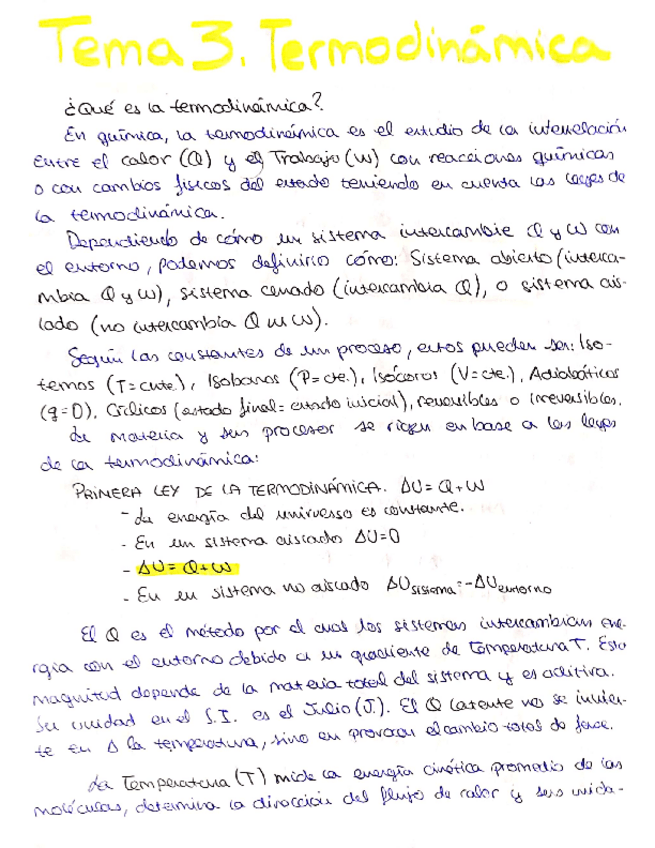 Tema 3. Termodinámica
¿Qué es la termodinámica?
En química, la termodinámica es el estudio de la interrelación
entre el calor (Q) y el Trabajo (W) con reacciones químicas
o con cambios físicos del estado teniendo en cuenta las leyes de
la termodinámica.
Dependiendo de cómo un sistema intercambie Q y W con
el entorno, podemos definirlo cómo: Sistema abierto (interca-
mbia Q y W), sistema cerrado (intercambia Q), o sistema ais-
lado (no intercambia Q ni W).
Según las constantes de un proceso, estos pueden ser: Iso-
termos (T=cnte.), Isobaros (P=cte.), Isócoros (V=cte.), Adiabáticos
(q=0), Cíclicos (estado final = estado inicial), reversibles o irreversibles.
La materia y sus procesos se rigen en base a las leyes
de la termodinámica:
PRIMERA LEY DE LA TERMODINÁMICA. ΔU = Q+W
- La energía del universo es constante.
- En un sistema aislado ΔU=0
- ΔU= Q+W
- En un sistema no aislado ΔUsistema = -ΔUentorno
El Q es el método por el cual los sistemas intercambian ene-
rgía con el entorno debido a un gradiente de Temperatura T. Esta
magnitud depende de la materia total del sistema y es aditiva.
Su unidad en el S.I. es el Julio (J). El Q latente no se invier-
te en Δ la temperatura, sino en provocar el cambio total de fase.
La Temperatura (T) mide la energía cinética promedio de las
moléculas, determina la dirección del flujo de calor y sus unida-